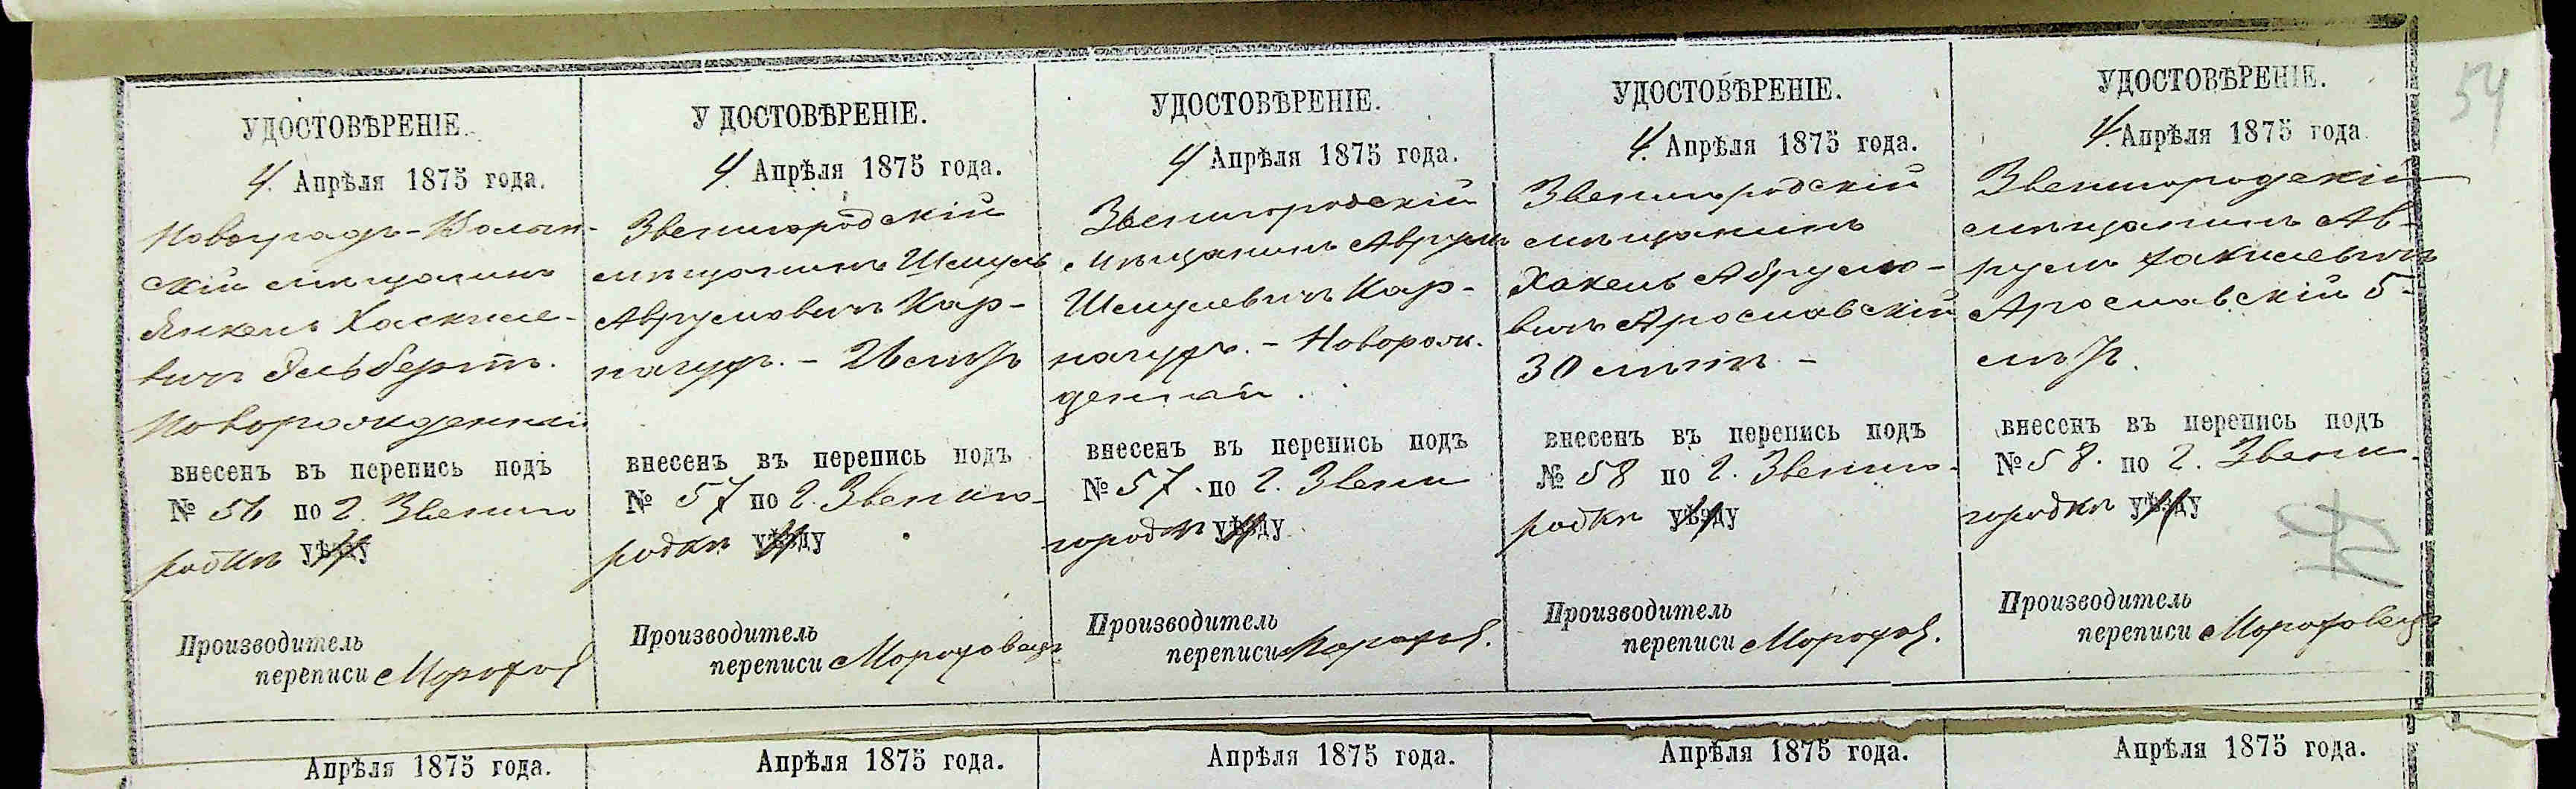 54
УДОСТОВѢРЕНІЕ.
4. Апрѣля 1875 года.
Новоградъ-Волын-
скій мѣщанинъ
Янкель Хаскиле-
вичъ Эльбертъ.
Новорожденный
внесенъ въ перепись подъ
№ 56 по г. Звениго
родкѣ уѣзду
Производитель
переписи
УДОСТОВѢРЕНІЕ.
4. Апрѣля 1875 года.
Звенигородскій
мѣщанинъ Шмуль
Аврумовичъ Кар-
нагуръ. - 26 лѣтъ
внесенъ въ перепись подъ
№ 57 по г. Звениго-
родкѣ уѣзду
Производитель
переписи
УДОСТОВѢРЕНІЕ.
4 Апрѣля 1875 года.
Звенигородскій
мѣщанинъ Аврумъ
Шмулевичъ Кар-
нагуръ. - Новорож-
денный.
внесенъ въ перепись подъ
№ 57. по г. Звени
городкѣ уѣзду
Производитель
переписи
УДОСТОВѢРЕНІЕ.
4. Апрѣля 1875 года.
Звенигородскій
мѣщанинъ
Хакель Абрумо-
вичъ Ярославскій
30 лѣтъ -
внесенъ въ перепись подъ
№ 58 по г. Звениго-
родкѣ уѣзду
Производитель
переписи
УДОСТОВѢРЕНІЕ.
4. Апрѣля 1875 года
Звенигородскій
мѣщанинъ Ав-
румъ Хакилевичъ
Ярославскій 5-
лѣтъ.
внесенъ въ перепись подъ
№ 58. по г. Звени-
городкѣ уѣзду
Производитель
переписи
Апрѣля 1875 года.
Апрѣля 1875 года.
Апрѣля 1875 года.
Апрѣля 1875 года.
Апрѣля 1875 года.